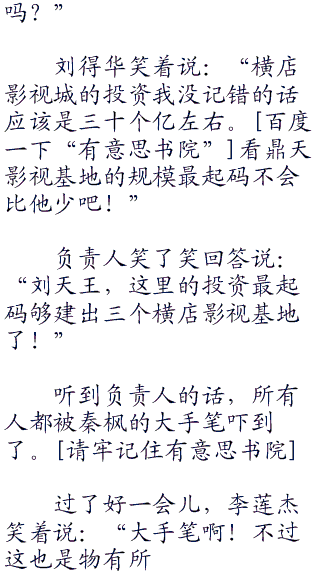 吗？”
刘得华笑着说：“横店
影视城的投资我没记错的话
应该是三十个亿左右。[百度
一下“有意思书院”]看鼎天
影视基地的规模最起码不会
比他少吧！”
负责人笑了笑回答说：
“刘天王，这里的投资最起
码够建出三个横店影视基地
了！”
听到负责人的话，所有
人都被秦枫的大手笔吓到
了。[请牢记住有意思书院]
过了好一会儿，李莲杰
笑着说：“大手笔啊！不过
这也是物有所